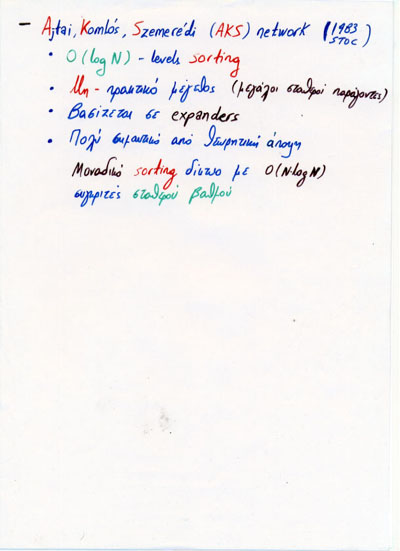 - Ajtai, Komlós, Szemerédi (AKS) network (1983 STOC)
• O(log N) - levels sorting
• Μη - πρακτικό μέγεθος (μεγάλοι σταθεροί παράγοντες)
• Βασίζεται σε expanders
• Πολύ σημαντικό από θεωρητική άποψη
Μοναδικό sorting δίκτυο με O(N·logN)
συγκριτές σταθερού βαθμού